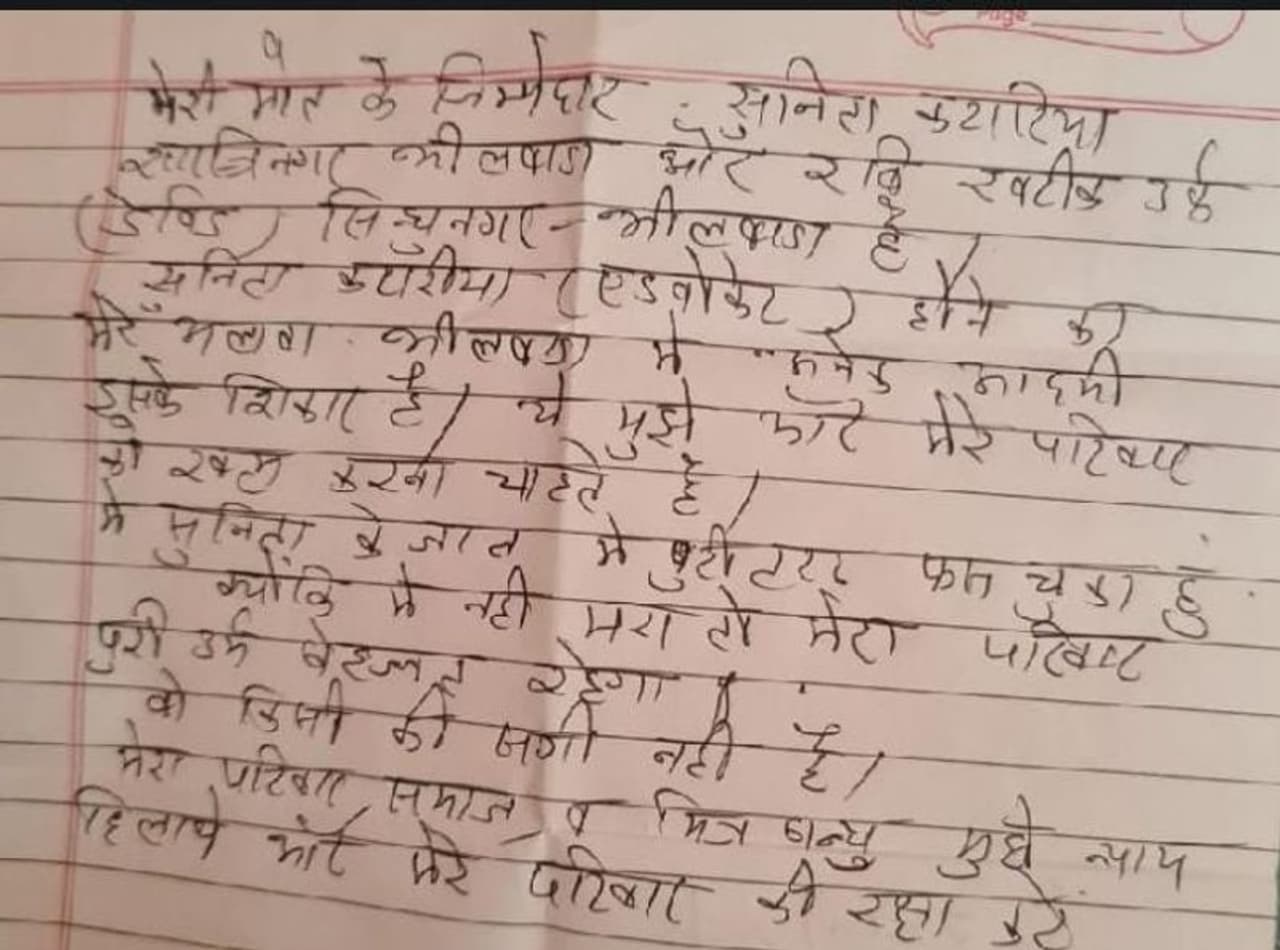 Page
मेरी मौत के जिम्मेदार : सुनिता कटारिया
शास्त्रिनगर भीलवाडा और रवि खटीक उर्फ
(डेविड) सिन्धुनगर - भीलवाडा है।
सुनिता कटारीया (एडवोकेट) होने की
मेरे अलावा भीलवाडा मे अनेक आदमी
इसके शिकार है। ये मुझे और मेरे परिवार
को खत्म करना चाहते है।
मे सुनिता के जाल मे बुरी तरर फस चुका हुं
क्योकि मे नही मरा तो मेरा परिवार
पुरी उर्म बेइज्जत रहेगा।
वो किसी की सगी नही है।
मेरा परिवार, समाज, व मित्र बन्धु मुझे न्याय
दिलावे और मेरे परिवार की रक्षा करे